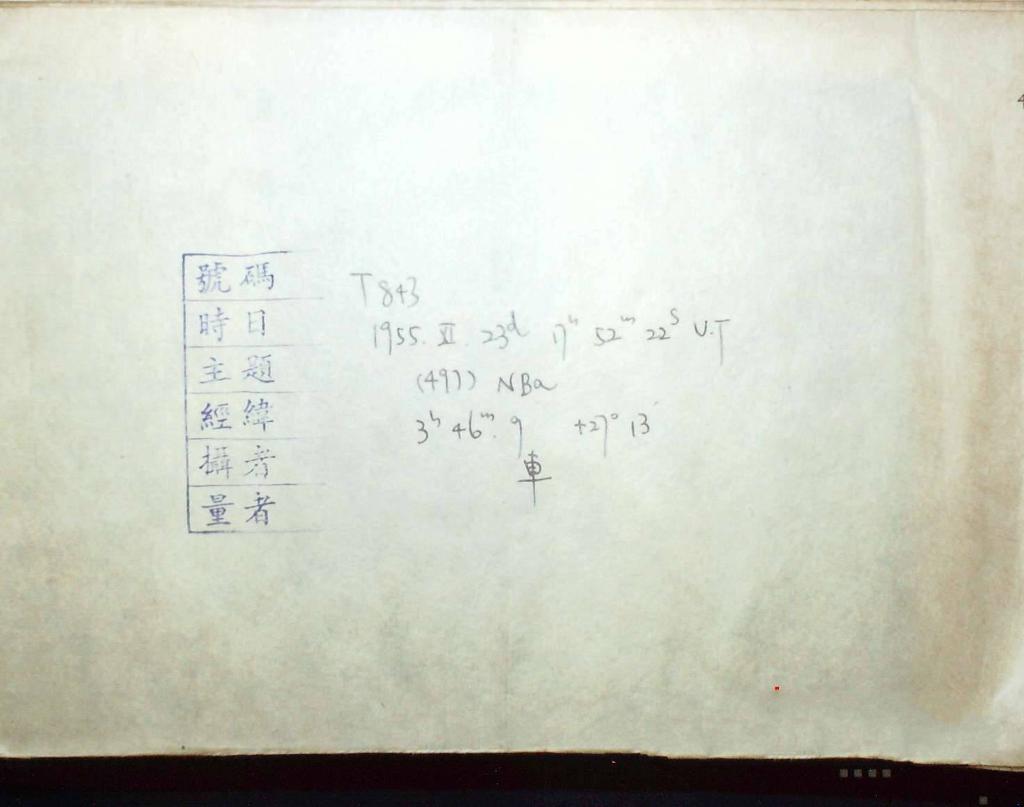 號碼 T 843
時日 1955. XI. 23d 17h 52m 22s U.T
主題 (497) NBa
經緯 3h 46m. 9 +27° 13'
攝者 車
量者
4